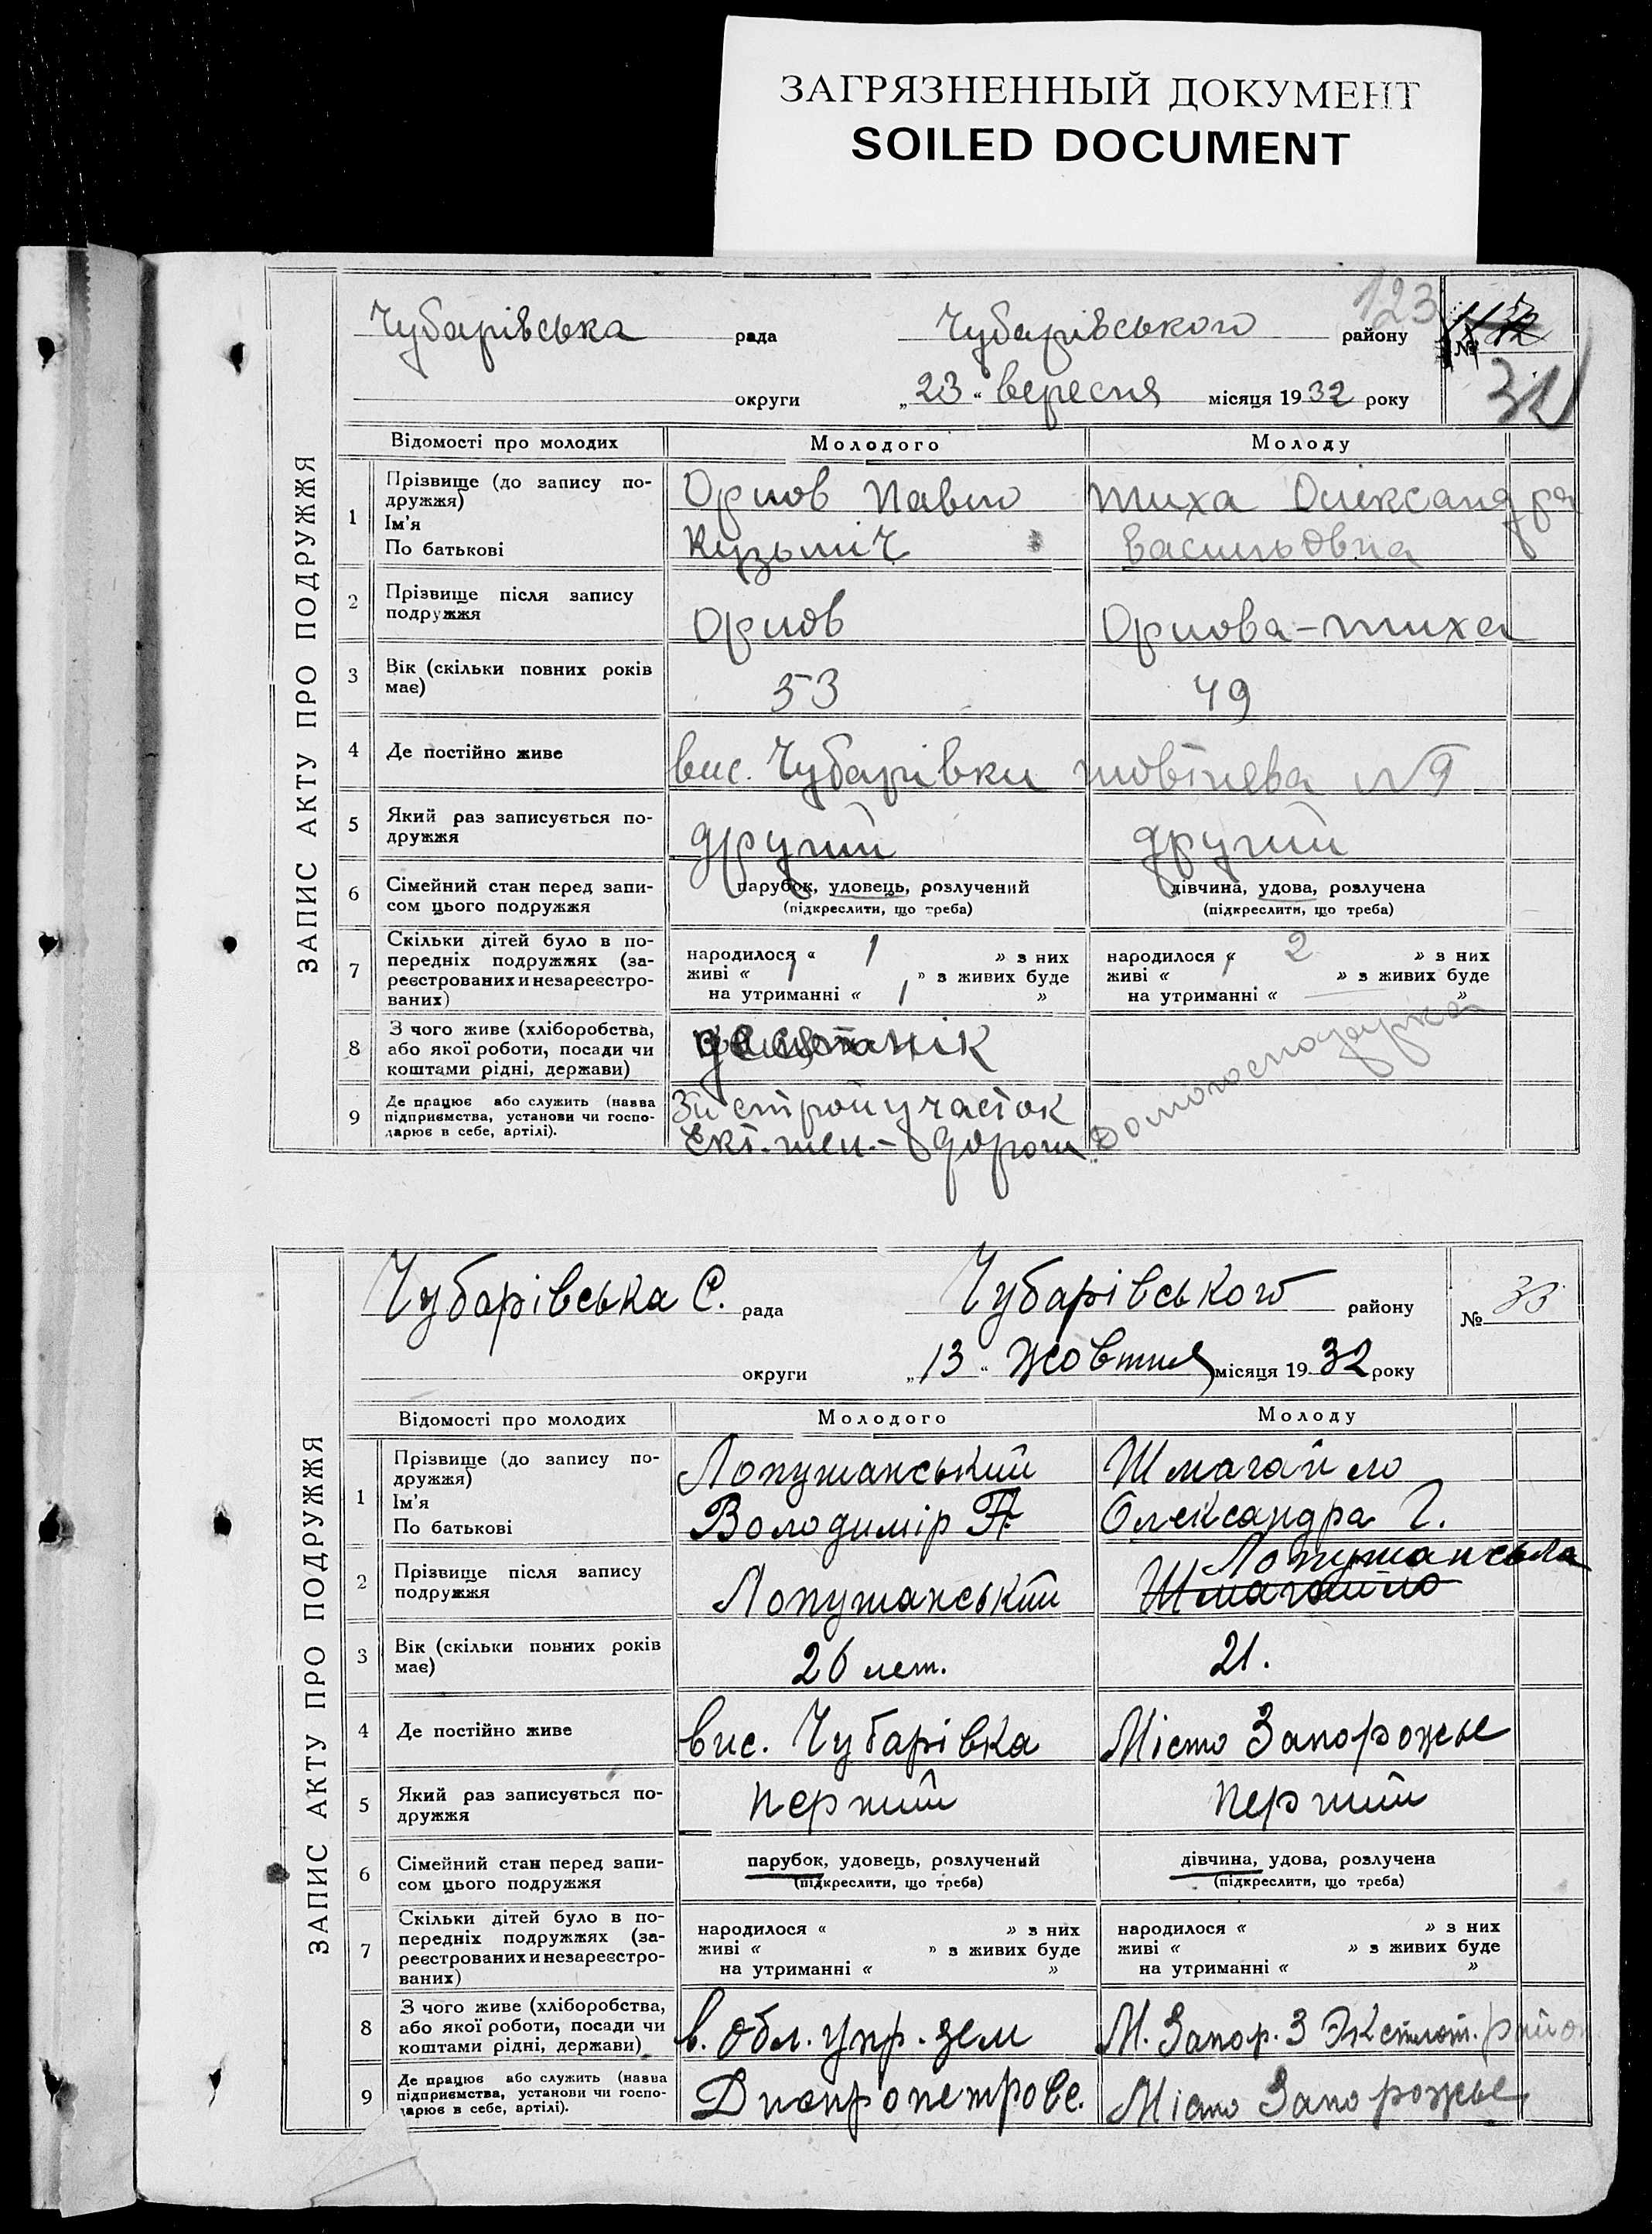 ЗАГРЯЗНЕННЫЙ ДОКУМЕНТ
SOILED DOCUMENT
123
Чубарівська рада Чубарівського району №
округи „23“ вересня місяця 1932 року
ЗАПИС АКТУ ПРО ПОДРУЖЖЯ
Відомості про молодих Молодого Молоду
1 Прізвище (до запису по-
дружжя)
Ім'я
По батькові
Орлов Павло
Кузьміч
Тиха Олександра
Васильовна
2 Прізвище після запису
подружжя
Орлов
Орлова-Тиха
3 Вік (скільки повних років
має)
53
49
4 Де постійно живе
вис. Чубарівки
№
5 Який раз записується по-
дружжя
другий
другий
6 Сімейний стан перед запи-
сом цього подружжя
парубок, удовець, розлучений
(підкреслити, що треба)
дівчина, удова, розлучена
(підкреслити, що треба)
7 Скільки дітей було в по-
передніх подружжях (за-
реєстрованих и незареєстро-
ваних)
народилося « 1 » з них
живі « 1 » з живих буде
на утриманні « 1 »
народилося « 2 » з них
живі « » з живих буде
на утриманні « »
8 З чого живе (хліборобства,
або якої роботи, посади чи
коштами рідні, держави)
9 Де працює або служить (назва
підприємства, установи чи госпо-
дарює в себе, артілі).
стройучасток
Домогосподарка
Чубарівська С. рада Чубарівського району № 33
округи „13“ Жовтня місяця 1932 року
ЗАПИС АКТУ ПРО ПОДРУЖЖЯ
Відомості про молодих Молодого Молоду
1 Прізвище (до запису по-
дружжя)
Ім'я
По батькові
Лопушанський
Володимір П.
Шмагайло
Олександра Г.
2 Прізвище після запису
подружжя
Лопушанський
Лопушанська
Шмагайло
3 Вік (скільки повних років
має)
26 лет.
21.
4 Де постійно живе
вис. Чубарівка
Місто Запорожье
5 Який раз записується по-
дружжя
перший
перший
6 Сімейний стан перед запи-
сом цього подружжя
парубок, удовець, розлучений
(підкреслити, що треба)
дівчина, удова, розлучена
(підкреслити, що треба)
7 Скільки дітей було в по-
передніх подружжях (за-
реєстрованих и незареєстро-
ваних)
народилося « » з них
живі « » з живих буде
на утриманні « »
народилося « » з них
живі « » з живих буде
на утриманні « »
8 З чого живе (хліборобства,
або якої роботи, посади чи
коштами рідні, держави)
в. обл. упр. зем
М. Запор. 3
9 Де працює або служить (назва
підприємства, установи чи госпо-
дарює в себе, артілі).
Днепропетровс.
Місто Запорожье